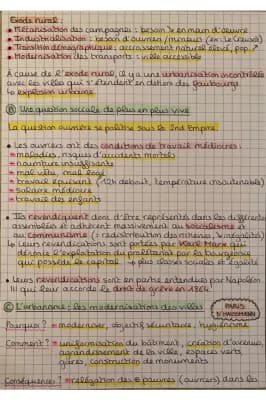 Exode rural :
• Mécanisation des campagnes : besoin en main d'œuvre
• Industrialisation : besoin d'ouvriers/mineurs (ex : Le Creusot)
• Transition démographique : accroissement naturel élevé, pop. ↗
• Modernisation des transports : ville accessible
À cause de l'exode rural, il y a une urbanisation incontrôlée
avec les villes qui s'étendent en dehors des faubourgs
↳ explosion urbaine
Ⓑ Une question sociale de plus en plus vive
La question ouvrière se politise sous le 2nd Empire.
• Les ouvriers ont des conditions de travail médiocres :
- maladies, risques d'accidents mortels
- nourriture insuffisante
- mal vêtu, mal logé
- travail épuisant (12h debout, température insoutenable)
- salaire médiocre
- travail des enfants
• Ils revendiquent donc d'être représentés dans les différentes
assemblées et adhèrent massivement au socialisme et
au communisme (: redistribution des richesses, + inégalités)
↳ Leurs revendications sont portées par Karl Marx qui
dénonce l'exploitation du prolétariat par la bourgeoisie
qui possède le capital → plus classes sociales et égalité
• Leurs revendications sont en partie entendues par Napoléon
qui leur accorde le droit de grève en 1864.
Ⓒ L'urbanisme : les modernisations des villes
PARIS
D'HAUSSMANN
Pourquoi ? = moderniser, objectif sécuritaire, hygiénisme
Comment ? = uniformisation du bâtiment, création d'avenues,
agrandissement de la ville, espaces verts,
gares, construction de monuments
Conséquences ? = relégation des pauvres (ouvriers) dans les